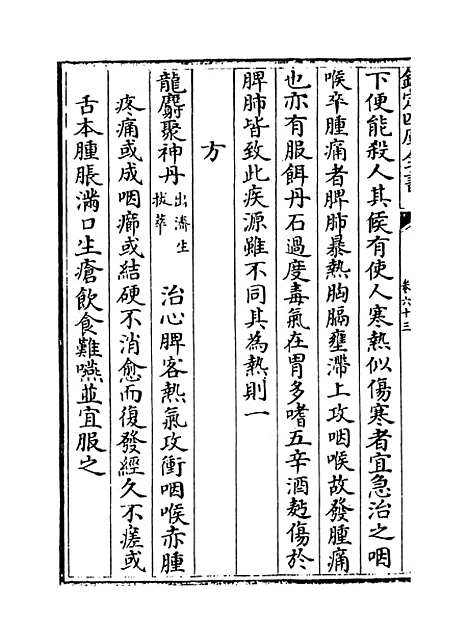 欽定四庫全書
卷六十三
下便能殺人其候有使人寒熱似傷寒者宜急治之咽
喉卒腫痛者脾肺暴熱胸膈壅滯上攻咽喉故發腫痛
也亦有服餌丹石過度毒氣在胃多嗜五辛酒麪傷於
脾肺皆致此疾源雖不同其為熱則一
方
龍麝聚神丹出濟生拔萃 治心脾客熱氣攻衝咽喉赤腫
疼痛或成咽癤或結硬不消愈而復發經久不瘥或
舌本腫脹滿口生瘡飲食難嚥並宜服之